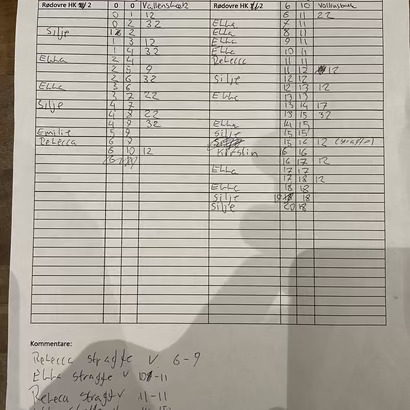 Rødovre HK 2 0 0 Vallensbæk 2
0 1 12
0 2 32
Silje 1 2
1 3 12
1 4 32
Ebba 2 4
2 5 9
2 6 32
Ebba 3 6
3 7 22
Silje 4 7
4 8 22
4 9 32
Emilie 5 9
Rebecca 6 9
6 10 12
Rødovre HK 2 6 10 Vallensbæk
6 11 22
Ebba 7 11
Ella 8 11
Ebba 9 11
Ella 10 11
Rebecca 11 11
11 12 12
Silje 12 12
12 13 12
Ebba 13 13
13 14 17
13 15 32
Ella 14 15
Silje 15 15
15 16 12 (straffe)
Kirstin 16 16
16 17 12
Ella 17 17
17 18 12
Ebba 18 18
Silje 19 18
Silje 20 18
Kommentarer:
Rebecca straffe v 6-9
Ebba straffe v 10-11
Rebecca straffe v 11-11